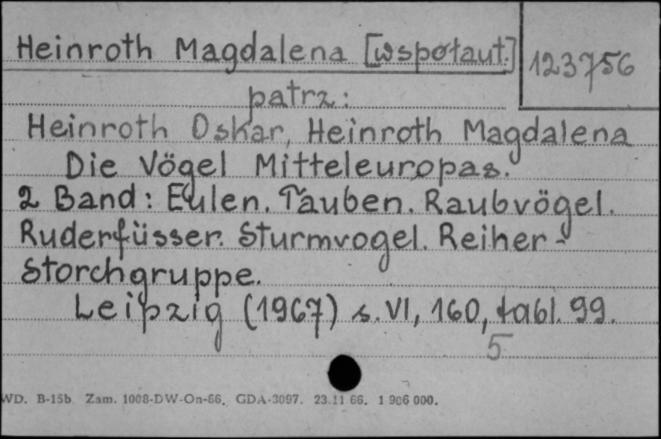 Heinroth Magdalena [współaut.] 123756
patrz:
Heinroth Oskar, Heinroth Magdalena
Die Vögel Mitteleuropas.
2 Band: Eulen. Tauben. Raubvögel.
Ruderfüsser. Sturmvogel. Reiher-
Storchgruppe.
Leipzig (1967) s. VI, 160, tabl. 99.
5
WD. B-15b Zam. 1008-DW-On-66. GDA-3097. 23.11 66. 1 906 000.